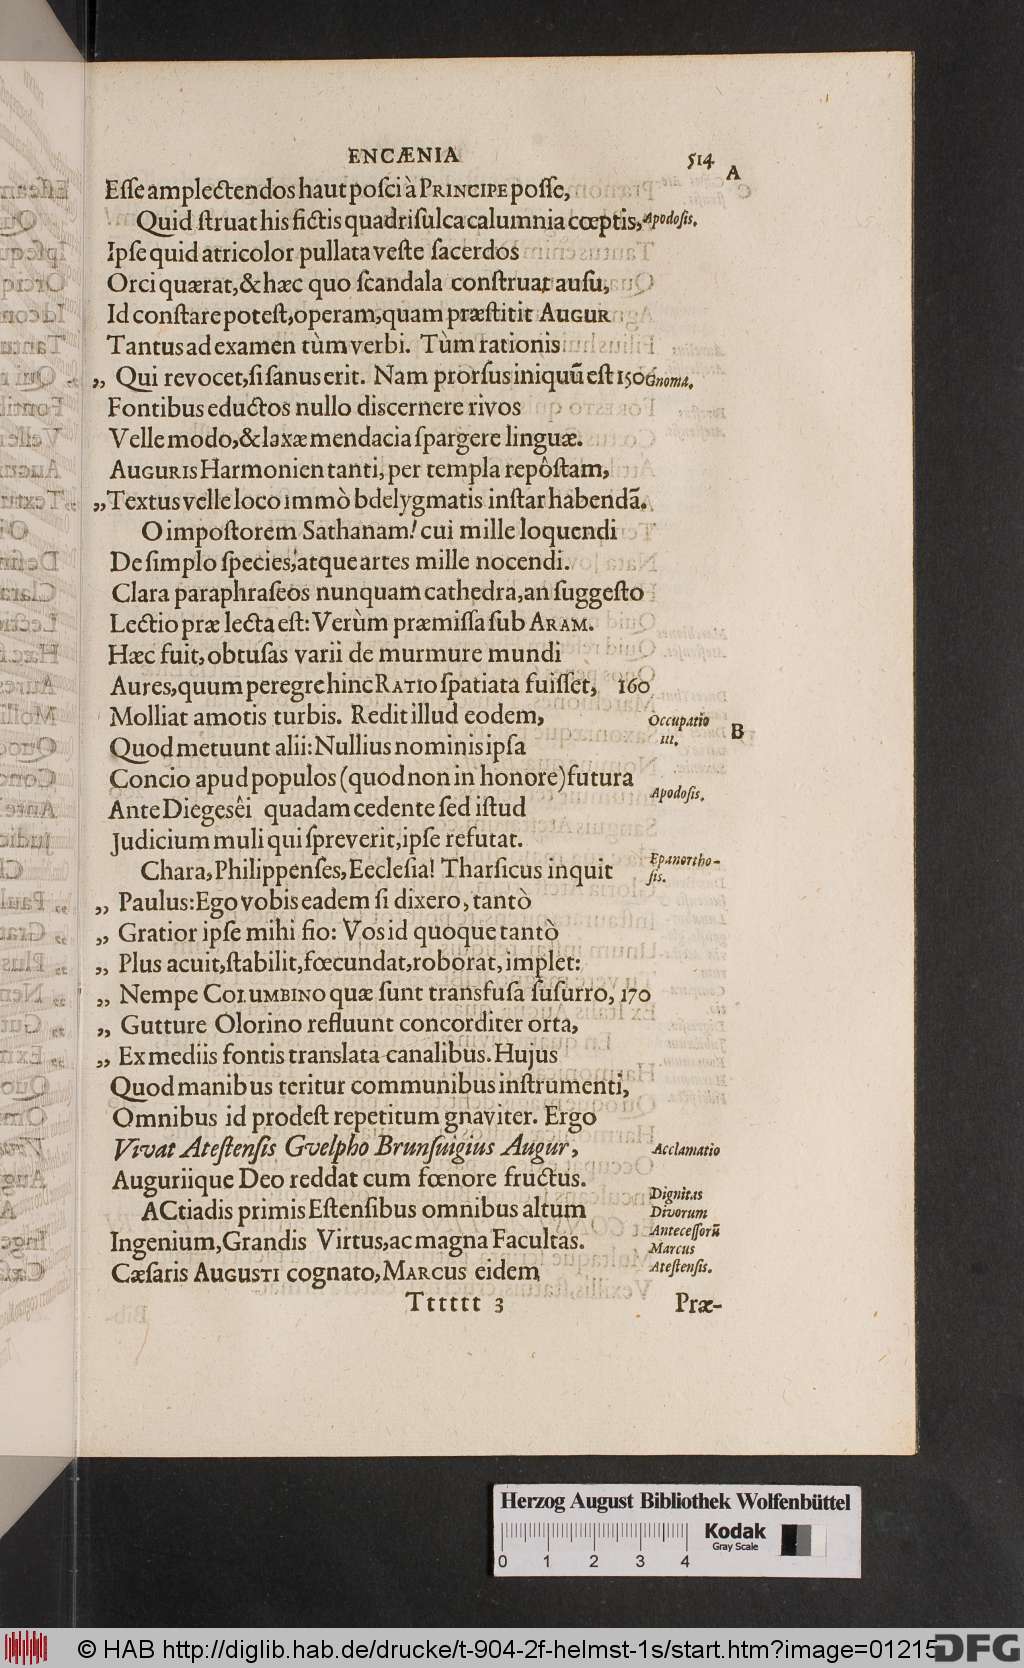 ENCÆNIA 514
A
Eſſe amplectendos haut poſci à PRINCIPE poſſe,
Quid ſtruat his fictis quadriſulca calumnia cœptis, Apodoſis.
Ipſe quid atricolor pullata veſte ſacerdos
Orci quærat, & hæc quo ſcandala conſtruat auſu,
Id conſtare poteſt, operam, quam præſtitit AUGUR
Tantus ad examen tùm verbi. Tùm rationis
„ Qui revocet, ſi ſanus erit. Nam prorſus iniquū eſt 150 Gnoma.
Fontibus eductos nullo diſcernere rivos
Velle modo, & laxæ mendacia ſpargere linguæ.
AUGURIS Harmonien tanti, per templa repôſtam,
„ Textus velle loco immò bdelygmatis inſtar habendā.
O impoſtorem Sathanam! cui mille loquendi
De ſimplo ſpecies, atque artes mille nocendi.
Clara paraphraſeos nunquam cathedra, an ſuggeſto
Lectio præ lecta eſt: Verùm præmiſſa ſub ARAM.
Hæc fuit, obtuſas varii de murmure mundi
Aures, quum peregre hinc RATIO ſpatiata fuiſſet, 160
Molliat amotis turbis. Redit illud eodem, Occupatio
Quod metuunt alii: Nullius nominis ipſa III. B
Concio apud populos (quod non in honore) futura
Ante Diegesêi quadam cedente ſed iſtud Apodoſis.
Judicium muli qui ſpreverit, ipſe refutat.
Chara, Philippenſes, Eccleſia! Tharſicus inquit Epanortho-
ſis.
„ Paulus: Ego vobis eadem ſi dixero, tantò
„ Gratior ipſe mihi fio: Vos id quoque tantò
„ Plus acuit, ſtabilit, fœcundat, roborat, implet:
„ Nempe COLUMBINO quæ ſunt transfuſa ſuſurro, 170
„ Gutture Olorino refluunt concorditer orta,
„ Ex mediis fontis translata canalibus. Hujus
Quod manibus teritur communibus inſtrumenti,
Omnibus id prodeſt repetitum gnaviter. Ergo
Vivat Ateſtenſis Gvelpho Brunſuigius Augur, Acclamatio
Auguriique Deo reddat cum fœnore fructus.
ACtiadis primis Eſtenſibus omnibus altum Dignitas
Divorum
Ingenium, Grandis Virtus, ac magna Facultas. Anteceſſorū
Marcus
Cæſaris AUGUSTI cognato, MARCUS eidem Ateſtenſis.
Tttttt 3 Præ-
Herzog August Bibliothek Wolfenbüttel
0 1 2 3 4
Kodak
Gray Scale
© HAB http://diglib.hab.de/drucke/t-904-2f-helmst-1s/start.htm?image=01215
DFG